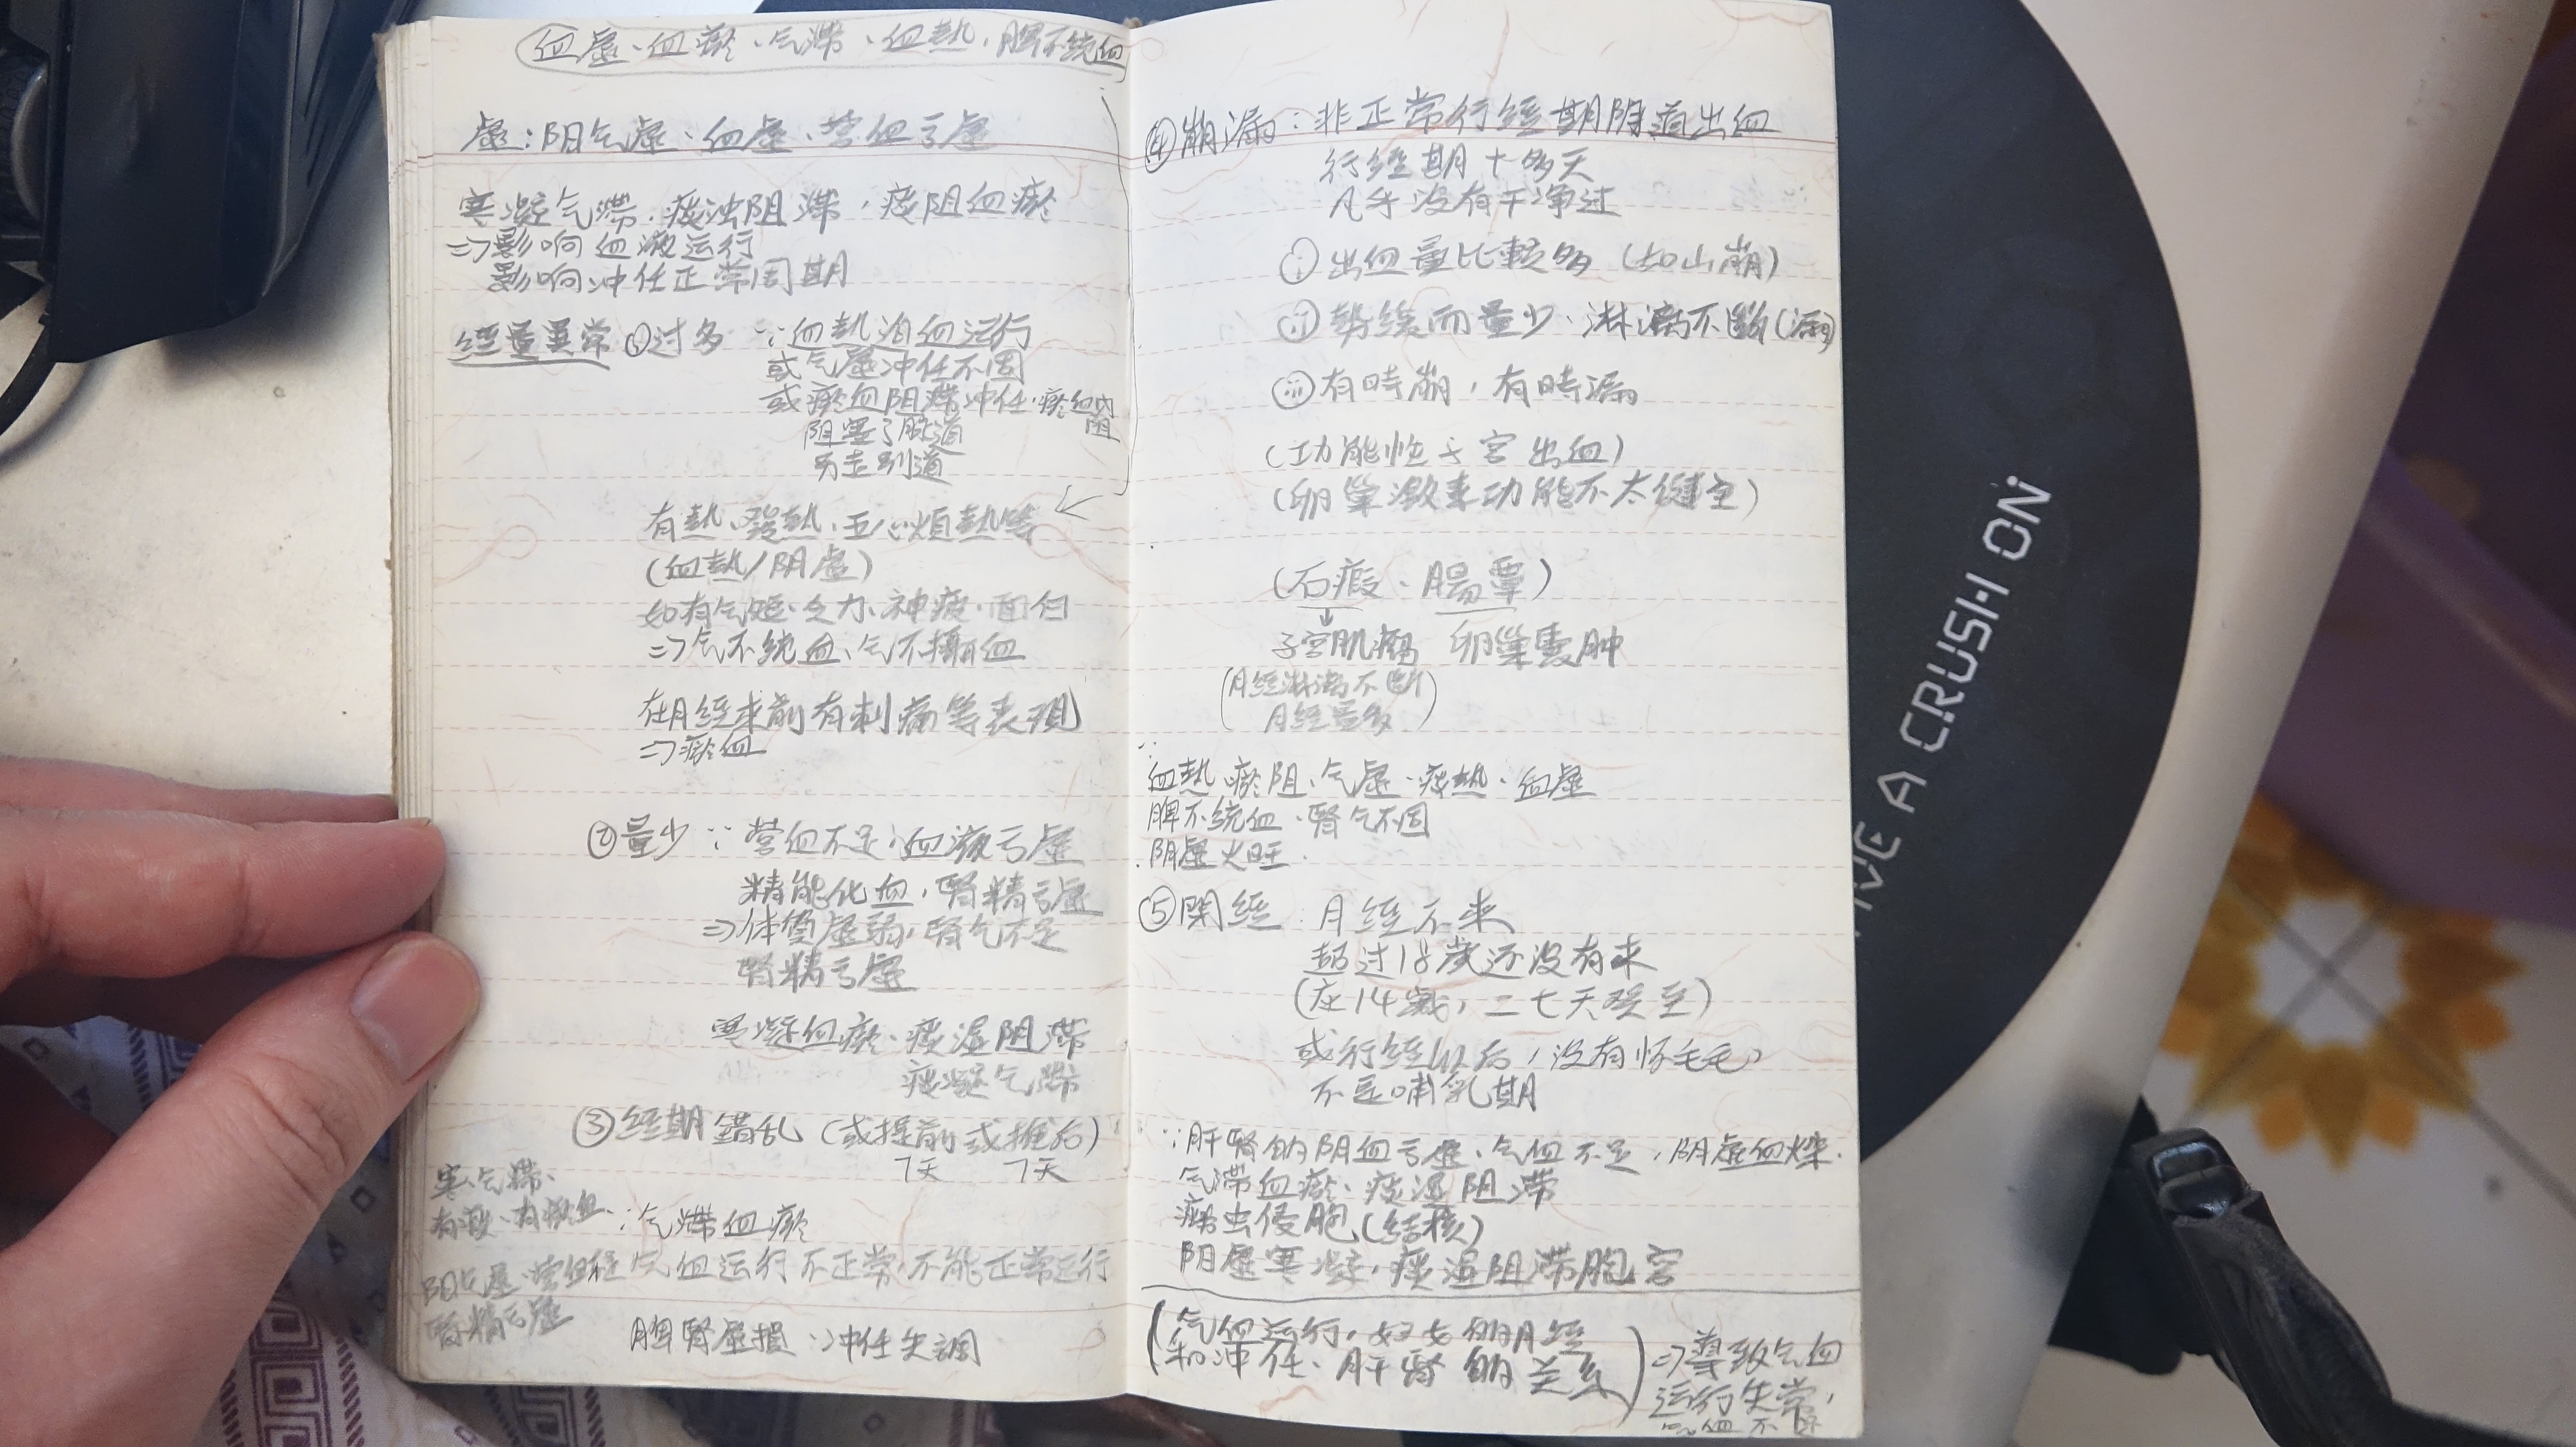 血虛、血瘀、气滞、血熱、脾不統血
虛：阳气虛、血虛、营血亏虛
寒凝气滞、痰浊阻滞，痰阻血瘀
=>影响血液运行
影响冲任正常周期
經量異常 ①过多 ∵血熱 血运行
或气虛冲任不固
或瘀血阻滞冲任·瘀血内阻
阻塞了脉道
另走别道
有熱、發熱、五心煩熱等
(血熱/阴虛)
如有气短、乏力、神疲、面白
=>气不統血、气不攝血
在月經来前有刺痛等表現
=>瘀血
②量少 ∵营血不足，血液亏虛
精能化血，腎精亏虛
=>体質虛弱，腎气不足
腎精亏虛
寒凝血瘀、痰湿阻滞
痰凝气滞
③經期錯乱 (或提前或推后)
7天 7天
寒、气滞、
有痰、有瘀血、
∵气滞血瘀
阳气虛、营血
腎精亏虛
气血运行不正常，不能正常运行
脾腎虛損 ∴冲任失調
④崩漏：非正常行經期阴道出血
行經期十多天
几乎没有干净过
ⓘ出血量比較多 (如山崩)
ⅱ勢緩而量少、淋漓不斷(漏)
ⅲ有時崩，有時漏
(功能性子宮出血)
(卵巢激素功能不太健全)
(石瘕、腸覃)
↓
子宮肌瘤 卵巢囊肿
(月經淋漓不斷
月經量多)
∵
血熱、瘀阻、气虛、痰熱、血虛
脾不統血、腎气不固
阴虛火旺.
⑤閉經：月經不来
超过18歲还没有来
(应14歲，二七天癸至)
或行經以后，没有怀毛毛，
不是哺乳期
∵肝腎的阴血亏虛、气血不足，阴虛血燥.
气滞血瘀、痰湿阻滞
癆虫侵胞(結核)
阳虛寒凝，痰湿阻滞胞宮
(气血运行，妇女的月經
和冲任、肝腎的关系)
=>導致气血
运行失常，
VE A CRUSH ON